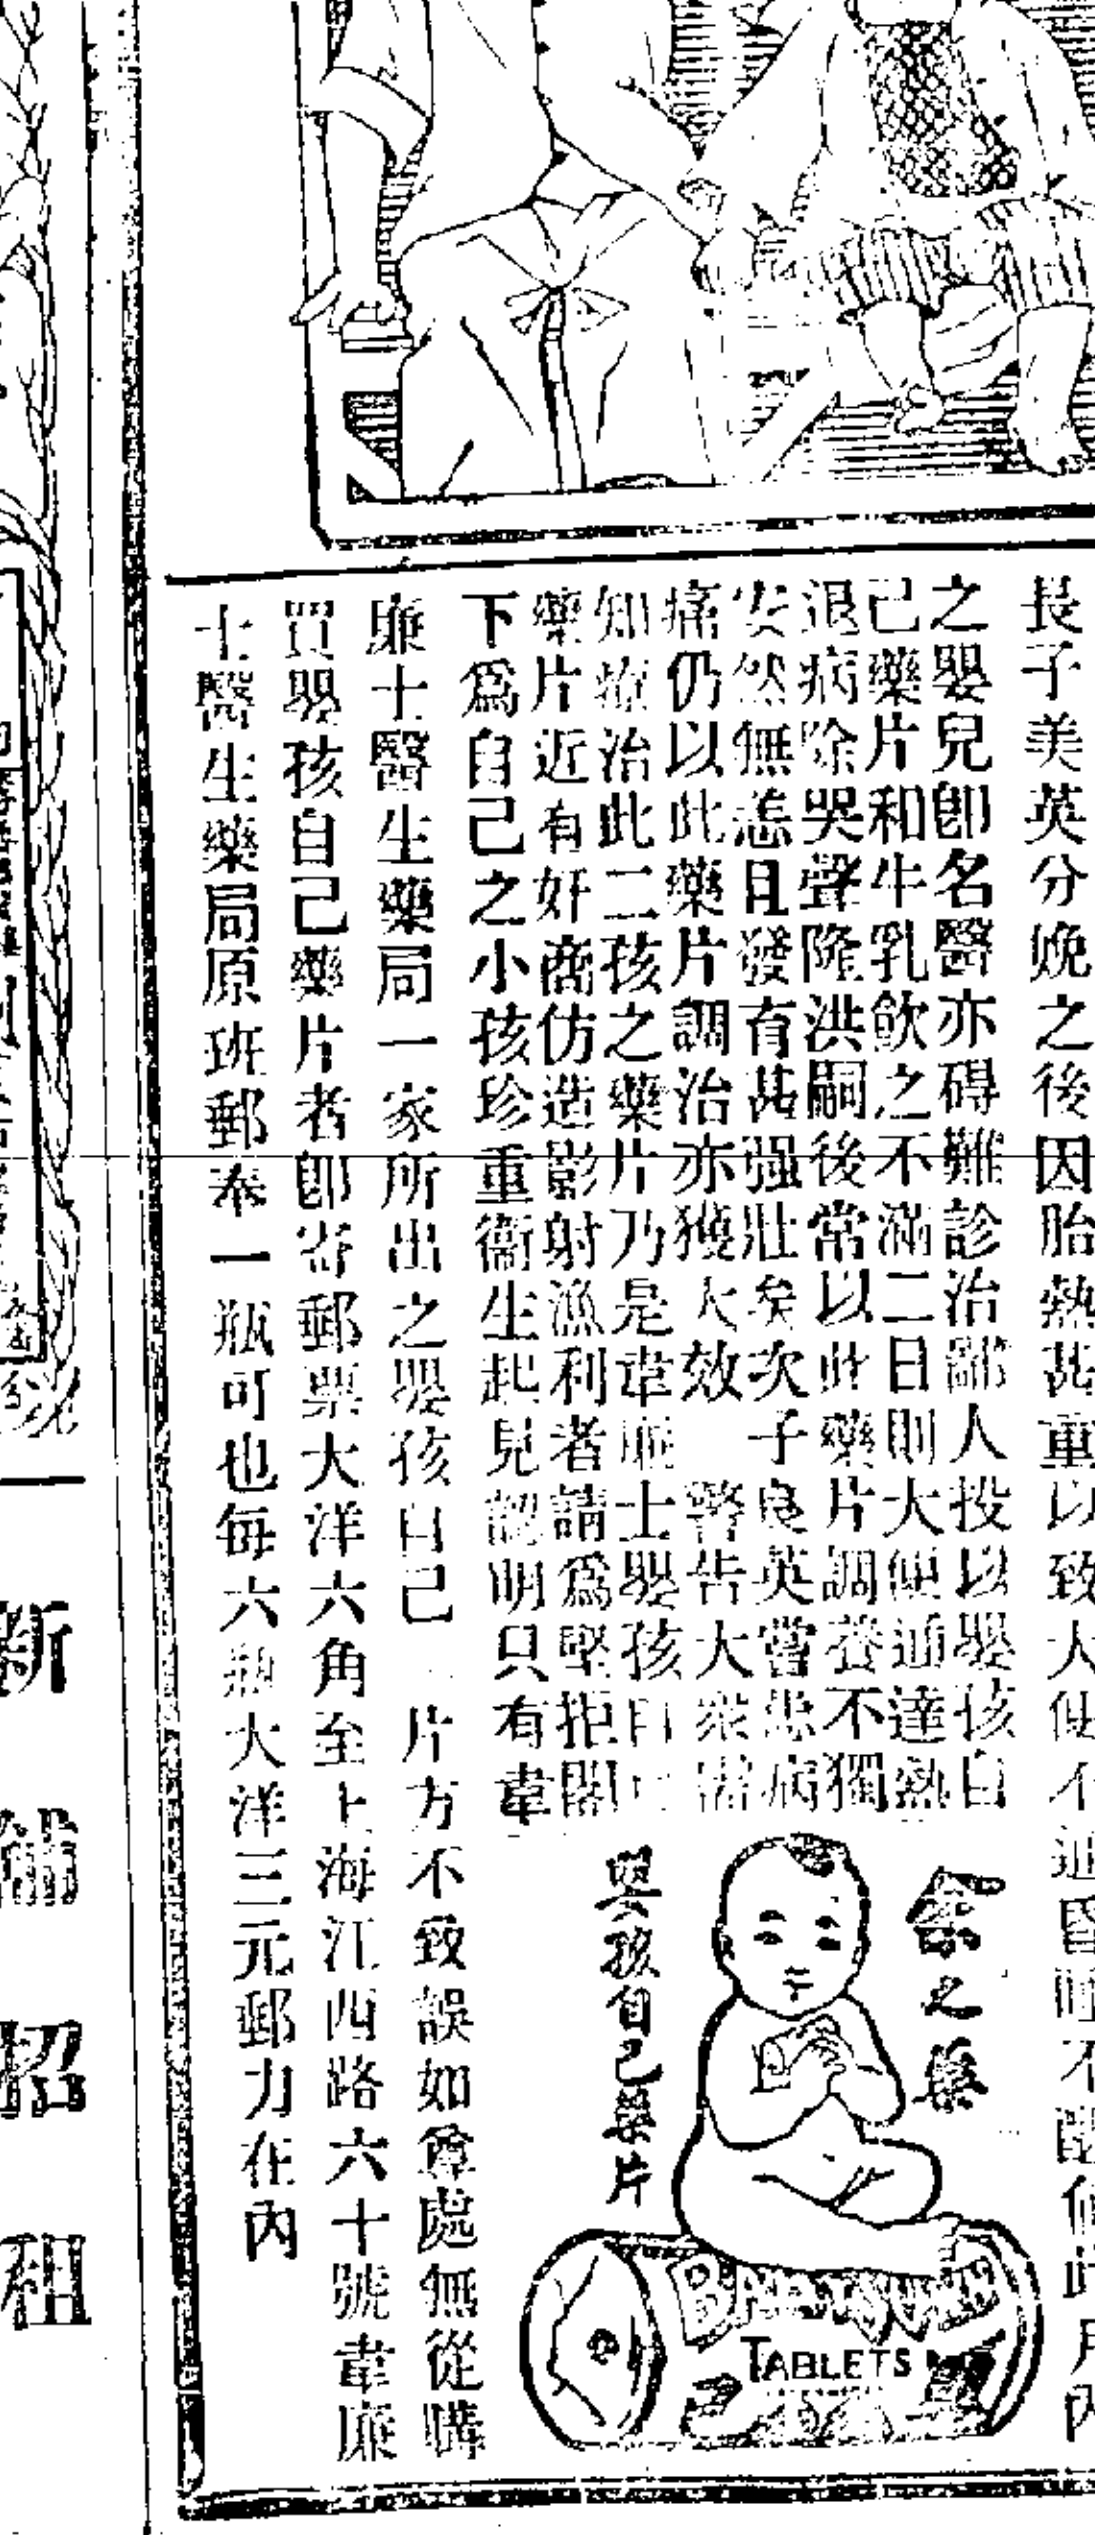 長子美英分娩之後因胎熱甚重以致大便不通昏睡不醒似此月內
之嬰兒卽名醫亦碍難診治鄙人投以嬰孩自
己藥片和牛乳飲之不滿二日則大便通達熱
退病除哭聲隆洪嗣後常以此藥片調養不獨
安然無恙且發育甚强壯矣次子良英嘗患病
痛仍以此藥片調治亦獲大效 警告大衆當
知療治此二孩之藥片乃是韋廉士嬰孩自己
藥片近有奸商仿造影射漁利者請爲堅拒閣
下爲自己之小孩珍重衞生起見認明只有韋
廉士醫生藥局一家所出之嬰孩自己 片方不致誤如尊處無從購
買嬰孩自己藥片者卽寄郵票大洋六角至上海江西路六十號韋廉
士醫生藥局原班郵奉一瓶可也每六瓶大洋三元郵力在內
余之藥
嬰孩自己藥片
TABLETS
新 舖 招 租